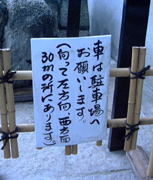 車は駐車場へ
お願いします。
(向って左方向 西方面
30mの所にあります)